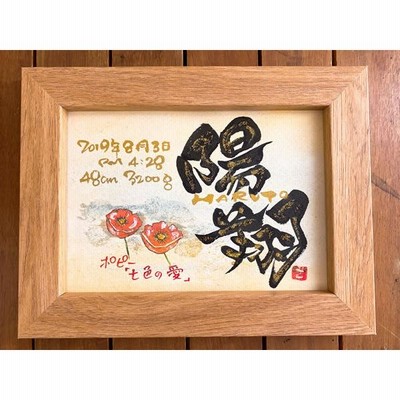 2019年8月3日
pm 4:28
48cm 3200g
陽翔
HARUTO
ポピー
「七色の愛」